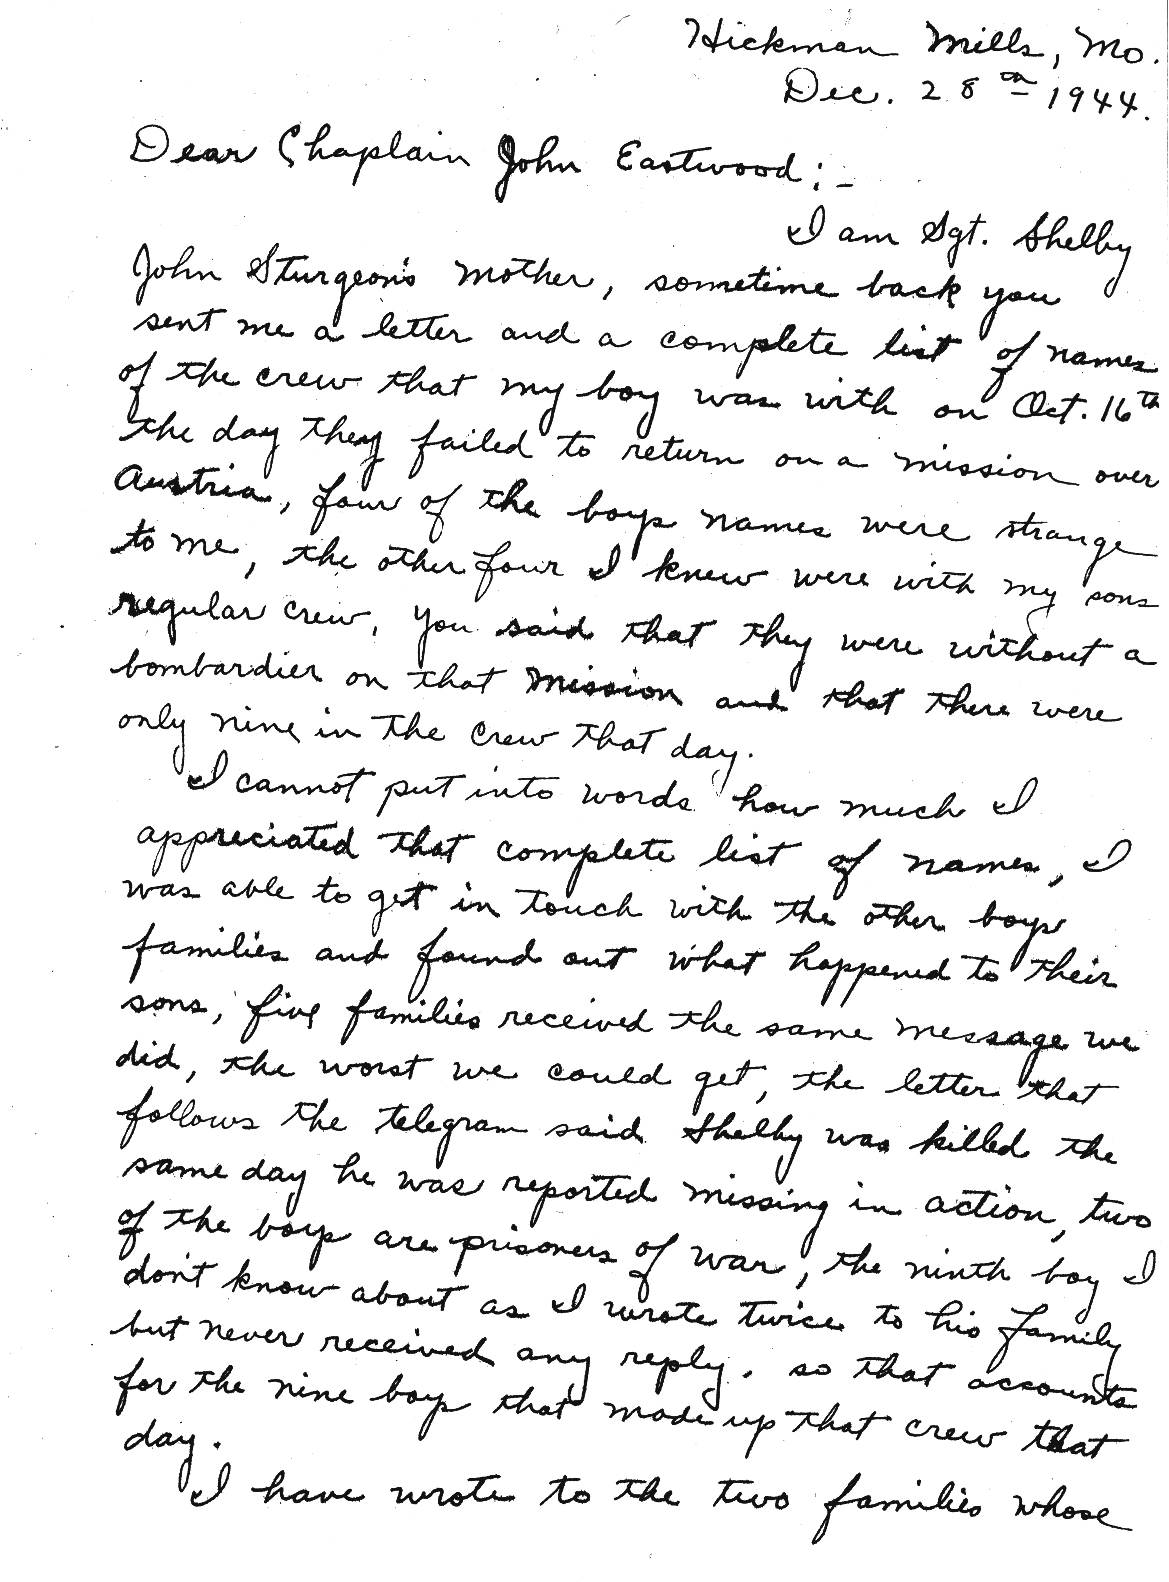 Hickman Mills, Mo.
Dec. 28th 1944.
Dear Chaplain John Eastwood:-
I am Sgt. Shelby
John Sturgeon's mother, sometime back you
sent me a letter and a complete list of names
of the crew that my boy was with on Oct. 16th
the day they failed to return on a mission over
Austria, four of the boys names were strange
to me, the other four I knew were with my sons
regular crew, you said that they were without a
bombardier on that mission and that there were
only nine in the crew that day.
I cannot put into words how much I
appreciated that complete list of names, I
was able to get in touch with the other boys
families and found out what happened to their
sons, five families received the same message we
did, the worst we could get, the letter that
follows the telegram said Shelby was killed the
same day he was reported missing in action, two
of the boys are prisoners of war, the ninth boy I
don't know about as I wrote twice to his family
but never received any reply. so that accounts
for the nine boys that made up that crew that
day.
I have wrote to the two families whose